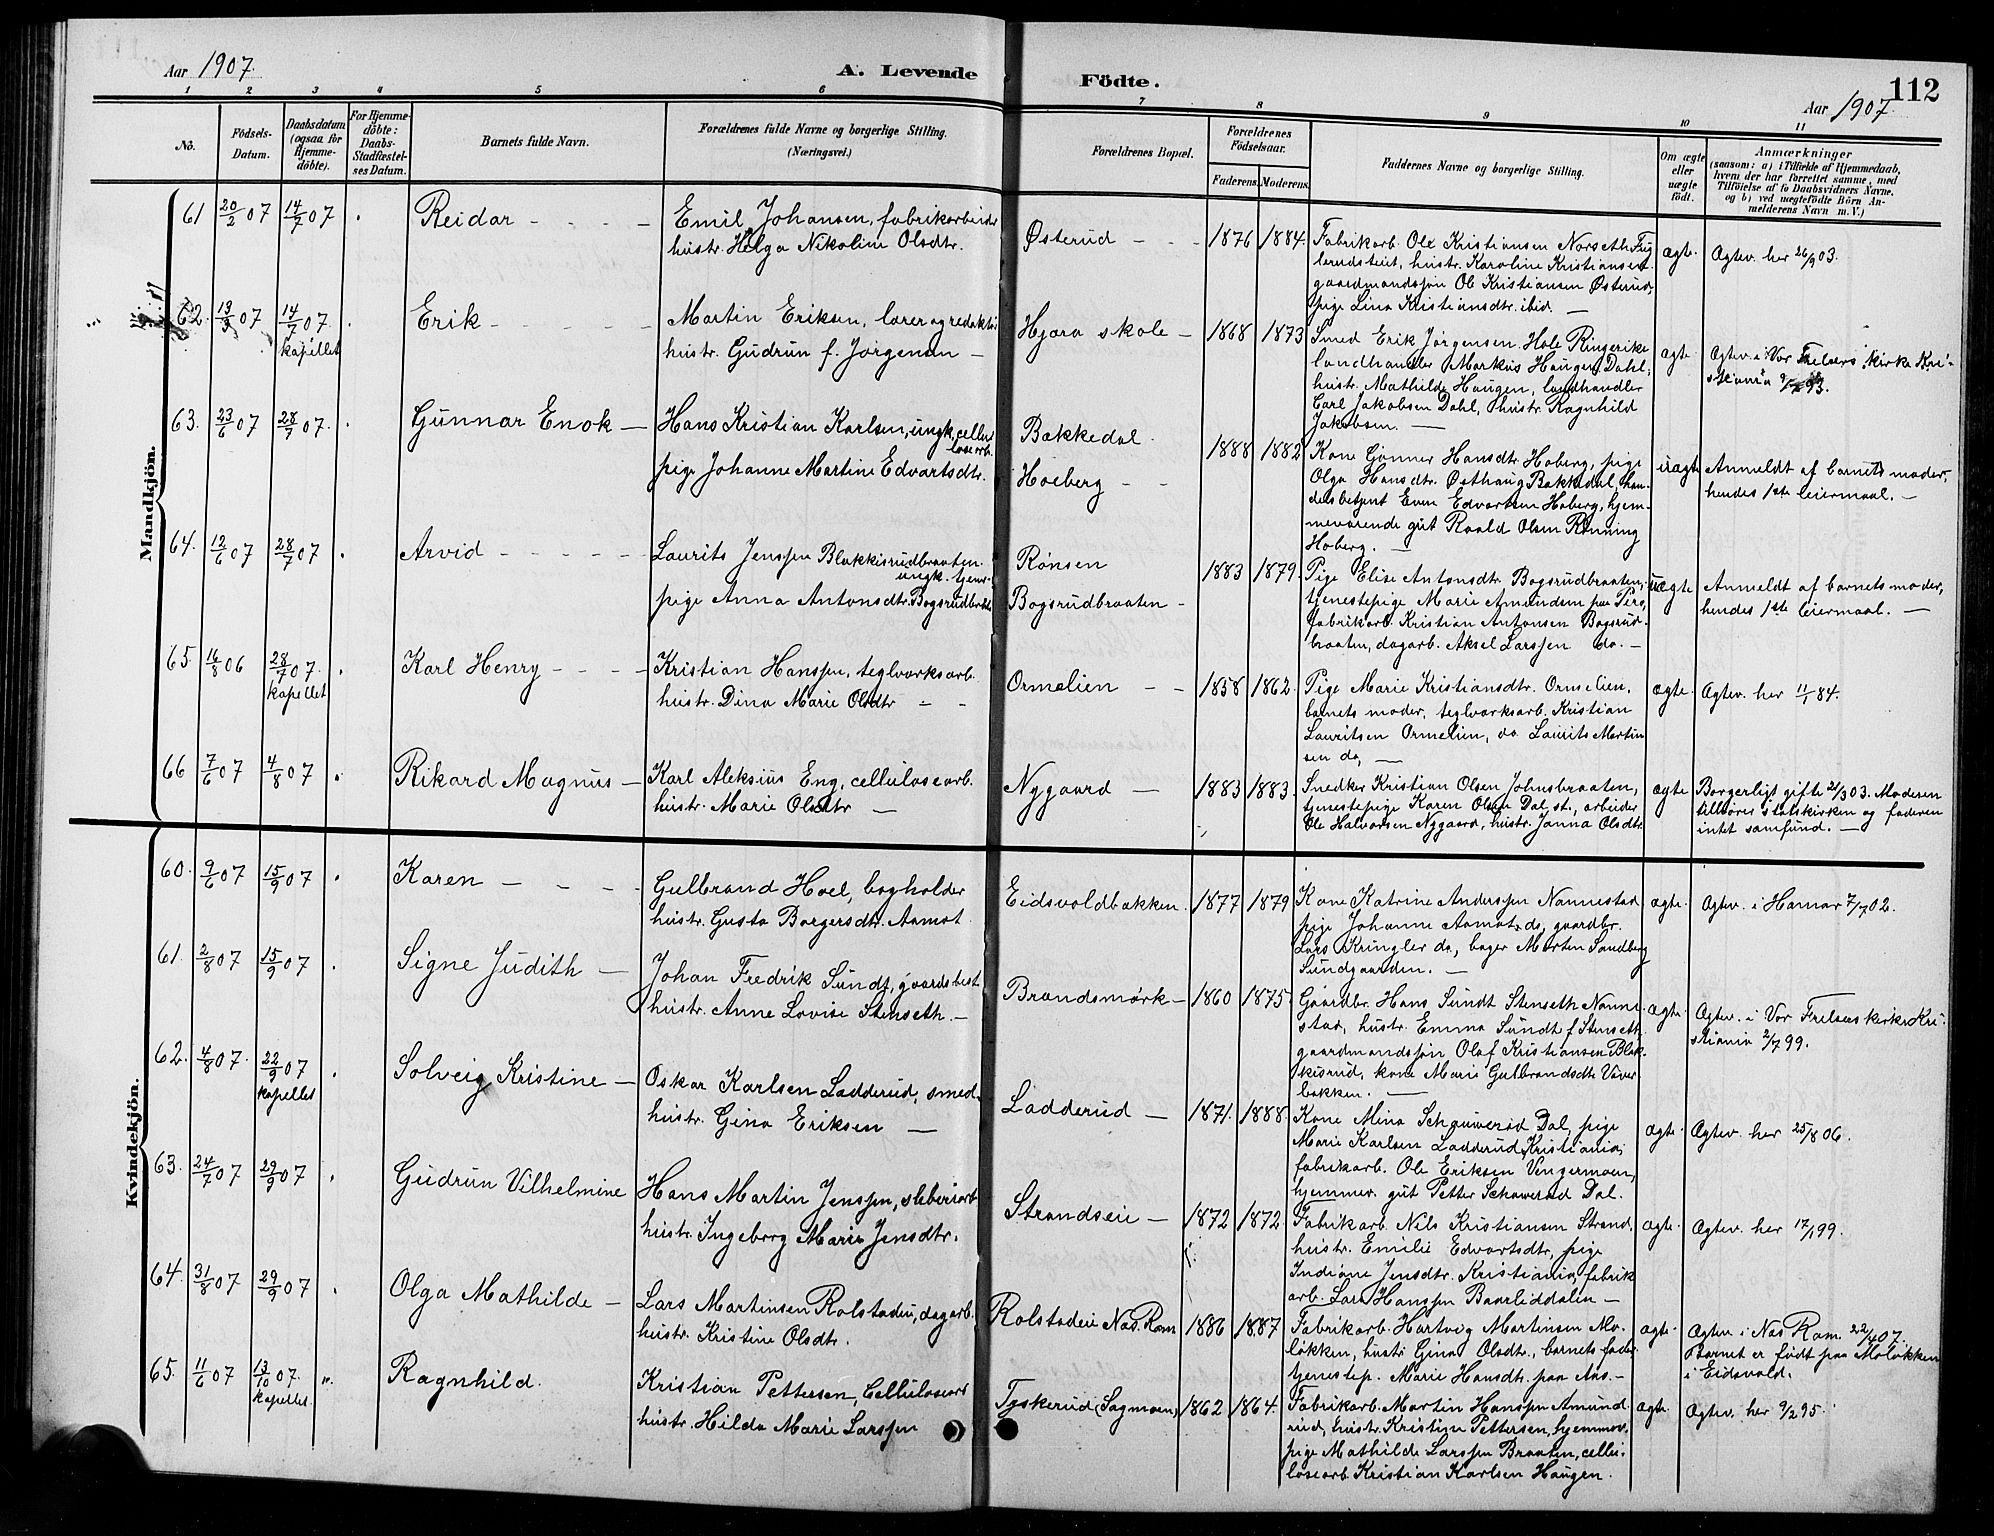 Aar 1907.
A. Levende
Födte.
112
Aar 1907.
1 2 3 4 5 6 7 8 9 10 11
No.
Födsels-
Datum.
Daabsdatum
(ogsaa for
Hjemme-
döbte).
For Hjemme-
döbte:
Daabs-
Stadfæstel-
ses Datum.
Barnets fulde Navn.
Forældrenes fulde Navne og borgerlige Stilling.
(Næringsvei.)
Forældrenes Bopæl.
Forældrenes
Födselsaar.
Faderens. Moderens.
Faddernes Navne og borgerlige Stilling.
Om ægte
eller
uægte
födt.
Anmærkninger
(saasom: a) i Tilfælde af Hjemmedaab,
hvem der har forrettet samme, med
Tilföielse af to Daabsvidners Navne,
og b) ved uægtefödte Börn An-
melderens Navn m. V.)
Mandkjön.
61 20/2 07 14/7 07 Reidar
Emil Johansen, fabrikarbeider
hustr. Helga Nikoline Olsdtr.
Østerud 1876 1884
Fabrikarb. Ole Kristiansen Norseth
hustr. Karoline Kristiansen
gaardmandssøn Ole Kristiansen Østerud,
pige Lina Kristiansdtr. ibid.
ægte.
Ægtev. her 26/9 03.
62. 13/3 07 14/7 07
kapellet
Erik
Martin Eriksen, lærer og redaktør
hustr. Gudrun f. Jørgensen
Hjæra skole 1868 1873
Smed Erik Jørgensen Hole Ringerike
landhandler Markus Haugen, Dahl,
hustr. Mathilde Haugen, landhandler
Carl Jakobsen Dahl, hustr. Ragnhild
Jakobsen.
ægte
Ægtev. i Vor Frelsers kirke Kri-
stiania 93.
63. 23/6 07 28/7 07. Gunnar Enok
Hans Kristian Karlsen, ungk. cellu-
losearb.
pige Johanne Martine Edvartsdtr.
Bakkedal.
Hoeberg
1888 1882
Kone Gunner Hansdtr. Hoberg, pige
Olga Hansdtr. Østhaug Bakkedal, han-
delsbetjent Even Edvartsen Hoberg, hjem-
meværende gut Roald Olsen Rønning
Hoberg.
uægte
Anmeldt af barnets moder,
hendes 1ste leiermaal.
64. 12/6 07 28/7 07 Arvid
Laurits Jenssen Blakkisrudbraaten
ungk. tjener
pige Anna Antonsdtr. Bogsrudbraaten
Rønsen
Bogsrudbraaten
1883 1879.
Pige Elise Antonsdtr. Bogsrudbraaten,
tjenestepige Marie Amundsen paa
fabrikarb. Kristian Antonsen Bogsrud-
braaten, dagarb. Aksel Larssen do.
uægte
Anmeldt af barnets moder,
hendes 1ste leiermaal.
65. 16/8 06 28/7 07.
kapellet
Karl Henry
Kristian Hanssen, teglværksarb.
hustr. Dina Marie Olsdtr
Ormelien 1858 1862.
Pige Marie Kristiansdtr. Ormelien,
barnets moder, teglværksarb. Kristian
Lauritsen Ormelien, do Laurits Martin
sen do,
ægte.
Ægtev. her 11/1 84.
66 7/6 07 4/8 07 Rikard Magnus
Karl Aleksius Eng, cellulosearb.
hustr. Marie Olsdtr
Nygaard 1883 1883.
Snedker Kristian Olsen Johnsbraaten,
tjenestepige Karen Olsen Dal st., arbeider
Ole Halvorsen Nygaard, hustr. Janna Olsdtr.
ægte
Borgerligt gifte 21/3 03. Moderen
tilhører statskirken og faderen
intet samfund.
Kvindekjön.
60. 9/6 07 15/9 07 Karen
Gulbrand Hoel, bogholder
hustr. Gusta Borgersdtr. Aamot
Eidsvoldbakken. 1877 1879
Kone Katrine Anderssen Nannestad
pige Johanne Aamot do, gaardbr.
Lars Kringler do, bager Morten Sandberg
Sundgaarden.
ægte.
Ægtev. i Hamar 7/7 02.
61. 2/8 07 15/9 07 Signe Judith
Johan Fredrik Sundt, gaardsbest.
hustr. Anne Lovise Stenseth.
Brandsmørk 1860 1875
Gaardbr. Hans Sundt Stenseth Nanne-
stad, hustr. Emma Sundt f. Stenseth
gaardmandssøn Olaf Kristiansen Blak-
kisrud, kone Marie Gulbrandsdtr
bakken.
ægte.
Ægtev. i Vor Frelsers kirke Kri-
stiania 2/7 99.
62. 4/8 07. 22/9 07
kapellet
Solveig Kristine
Oskar Karlsen Ladderud, smed,
hustr. Gina Eriksen
Ladderud 1871. 1888
Kone Mina Schauverød Dal, pige
Marie Karlsen Ladderud, Kristiania,
fabrikarb. Ole Eriksen Vengermoen,
hjemmev. gut Petter Schauverød Dal.
ægte.
Ægtev. her 25/8 06.
63. 24/7 07 29/9 07 Gudrun Vilhelmine
Hans Martin Jenssen, sliberiarb
hustr. Ingeborg Marie Jensdtr.
Strandseie 1872 1872
Fabrikarb. Nils Kristiansen Strand,
hustr. Emilie Edvartsdtr, pige
Indiane Jensdtr. Kristiania, fabrik
arb. Lars Hanssen Baarliddalen
ægte.
Ægtev. her 17/1 99.
64. 31/8 07 29/9 07 Olga Mathilde
Lars Martinsen Rolstadeie, dagarb.
hustr. Kristine Olsdtr.
Rolstadeie Næs, Rom 1886 1887
Fabrikarb. Hartvig Martinsen Mo-
løkken, hustr. Gina Olsdtr., barnets fader
tjenestep. Marie Hansdtr. paa Aas.
ægte.
Ægtev. i Næs Rom. 22/4 07.
Barnet er født paa Moløkken
i Eidsvold.
65. 11/6 07 13/10 07.
kapellet
Ragnhild.
Kristian Pettersen, Cellulosearb
hustr. Hilda Marie Larssen
Tyskerud (Sagmoen) 1862 1864.
Fabrikarb. Martin Hanssen Amund
rud, hustr. Kristine Pettersen, hjemmev.
pige Mathilde Larssen Braaten, cellu-
losearb. Kristian Karlsen Haugen.
ægte.
Ægtev. her 9/2 95.